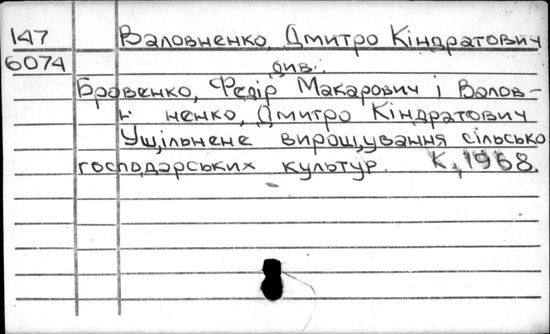 147 Валовненко, Дмитро Кіндратович
6074 див.:
Бровенко, Федір Макарович і Валов-
ненко, Дмитро Кіндратович
Ущільнене вирощування сільсько
господарських культур. К., 1968.